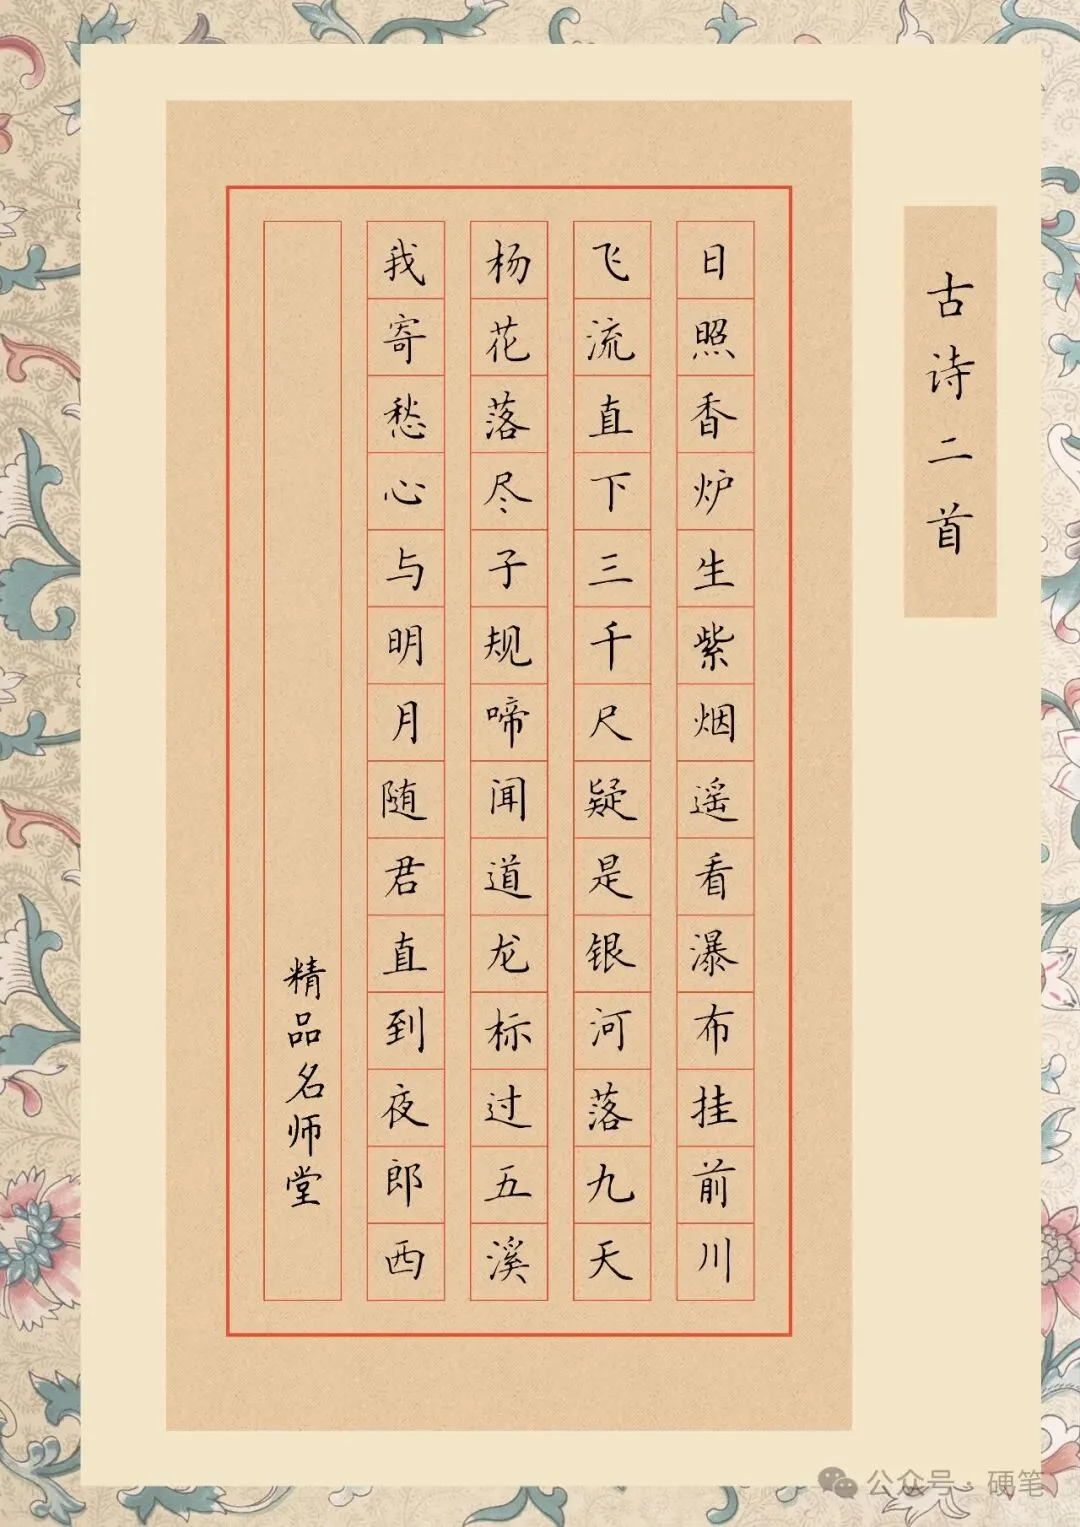 古诗二首
日照香炉生紫烟遥看瀑布挂前川
飞流直下三千尺疑是银河落九天
杨花落尽子规啼闻道龙标过五溪
我寄愁心与明月随君直到夜郎西
精品名师堂
公众号·硬笔